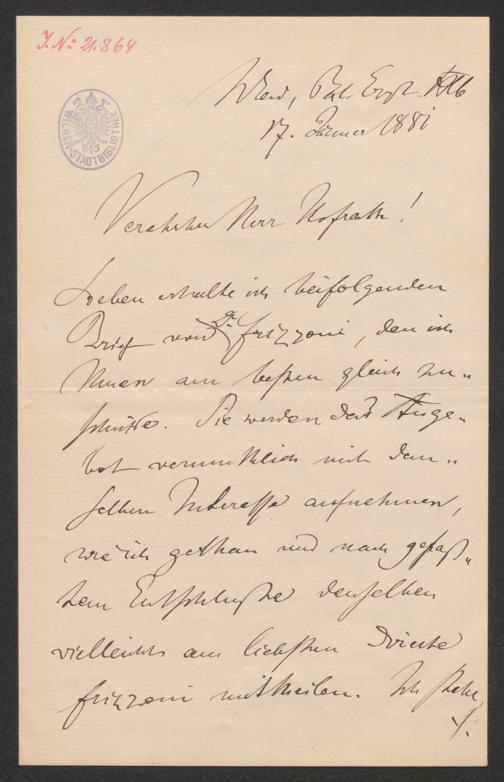 J. N: 21.864
WIENER-STADTBIBLIOTHEK
Wien, Pal. Erzh.
17. Jänner 1881
Verehrter Herr Hofrath!
Soeben erhalte ich beifolgenden
Brief von Dr. Frizzoni, den ich
Ihnen am besten gleich zu„
schicke. Sie werden das Ange„
bot vermuthlich mit dem„
selben Interesse aufnehmen,
wie ich gethan und nach gefaß„
tem Entschlusse denselben
vielleicht am liebsten direkte
Frizzoni mittheilen. Ich stehe